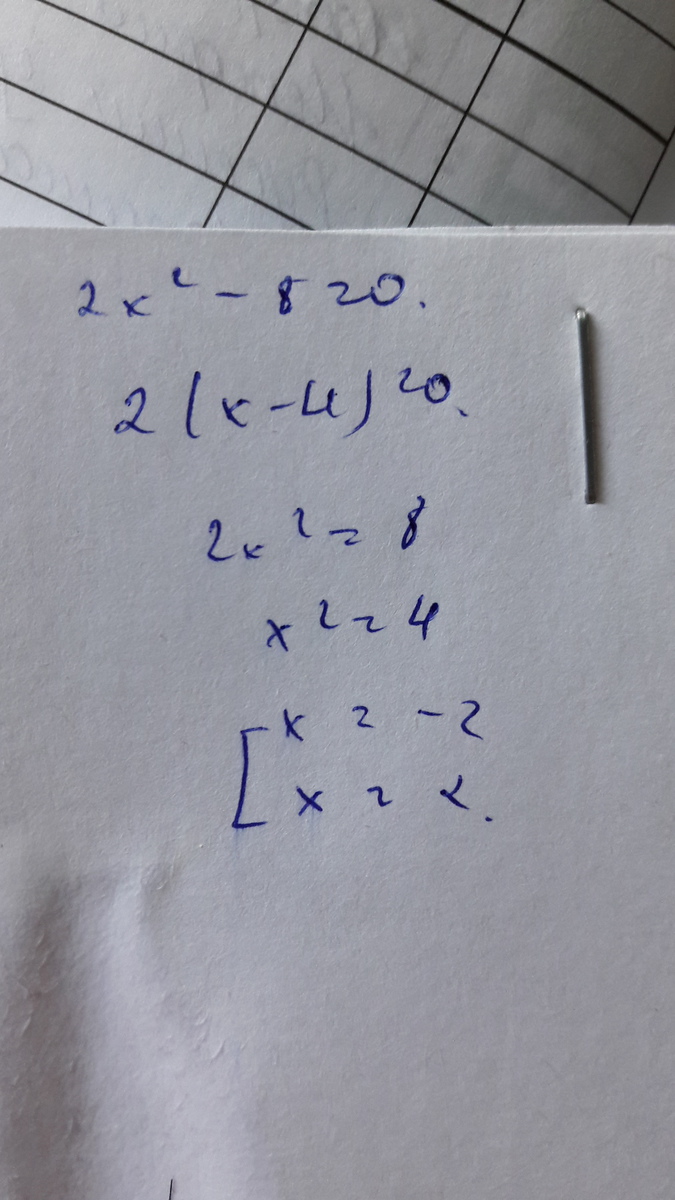 2x² - 8 = 0.
2(x-4) = 0.
2x² = 8
x² = 4
[x = -2
x = 2.